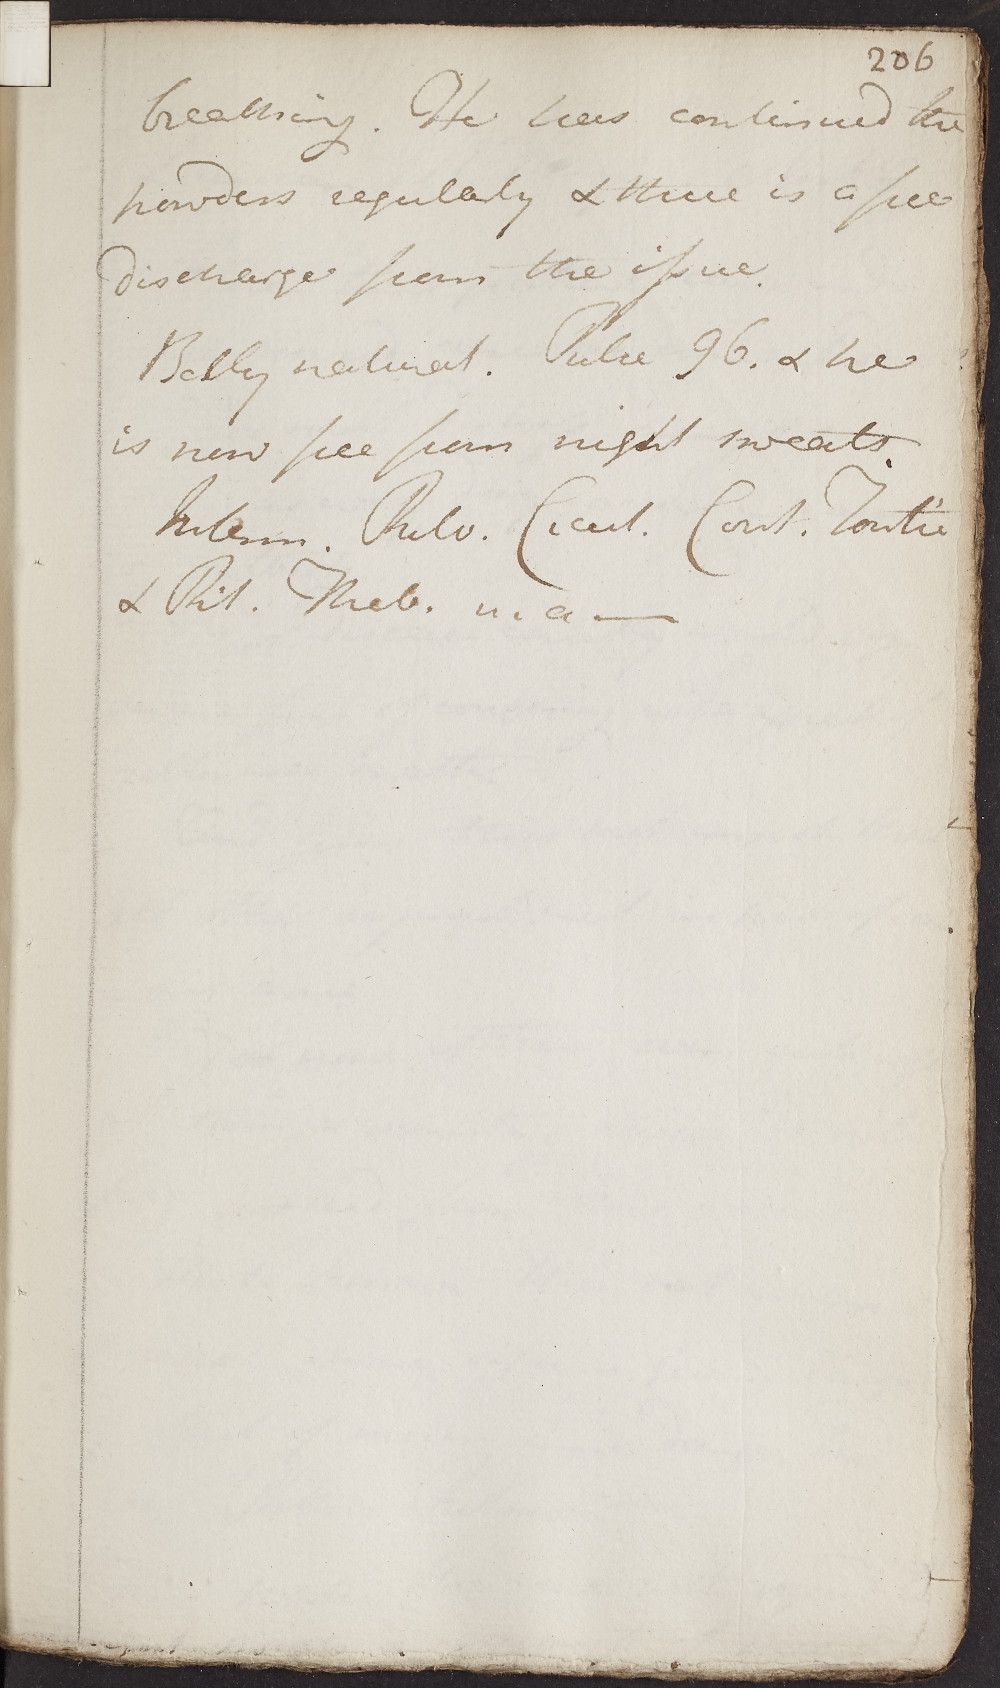 206
breathing. He has continued the
powders regularly & there is a free
discharge from the issue.
Belly natural. Pulse 96. & he
is now free from night sweats.
Interm. Pulv. Cicut. Cont.
& Pil. Theb. u. a